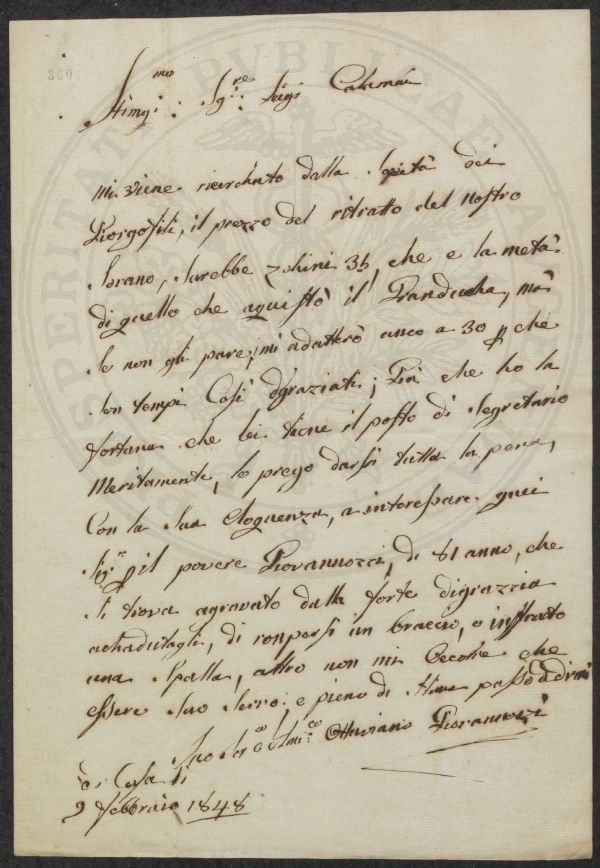 360
Stimg.mo Sig.re Luigi Calamai
Mi viene ricerchato dalla Società dei
Giorgofili, il prezzo del ritratto del nostro
Sovrano, Sarebbe zchini 35, che e la metà
di quello che aquistò il Granducha, mà
Se non gli pare, mi adatterò anco a 30 p che
Son tempi Cosi dgraziati; Già che ho la
fortuna che lei tiene il posto di Segretario
Meritamente, lo prego darsi tutta la pena,
Con la Sua Eloquenza, a interessare quei
Sig.ri p il povere Giovannozzi, di 81 anno, che
Si trova agravato dalla forte digrazzia
achadutagli, di ronpersi un braccio, e
una Spalla, altro non mi Occorre che
essere Suo Servo, e pieno di Stima passo a dirmi
Suo Ser Ottaviano Giovannozzi
di Casa li
9 Febbraio 1848